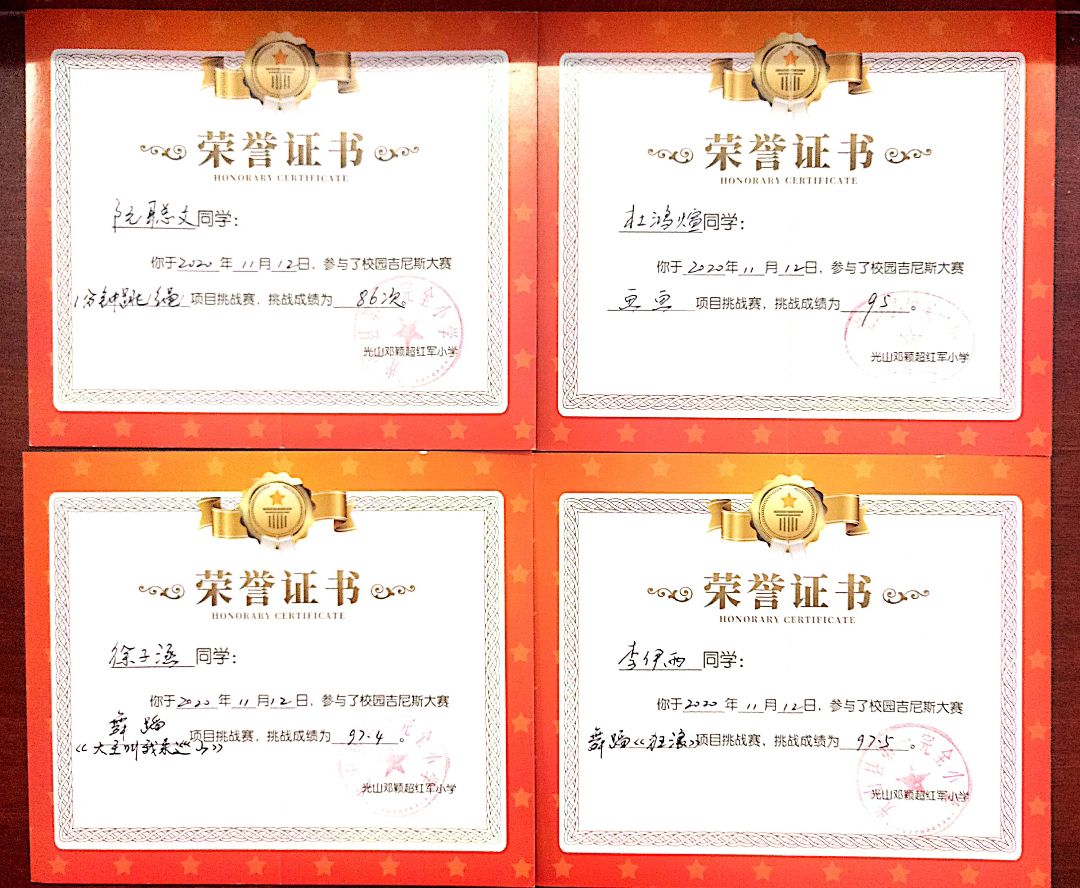 荣誉证书
HONORARY CERTIFICATE
阮聪文同学：
你于2020年11月12日，参与了校园吉尼斯大赛
1分钟跳绳项目挑战赛，挑战成绩为86次。
光山邓颖超红军小学
荣誉证书
HONORARY CERTIFICATE
杜鸿煊同学：
你于2020年11月12日，参与了校园吉尼斯大赛
画画项目挑战赛，挑战成绩为95。
光山邓颖超红军小学
荣誉证书
HONORARY CERTIFICATE
徐子涵同学：
你于2020年11月12日，参与了校园吉尼斯大赛
舞蹈
《大王叫我来巡山》项目挑战赛，挑战成绩为97.4。
光山邓颖超红军小学
荣誉证书
HONORARY CERTIFICATE
李伊雨同学：
你于2020年11月12日，参与了校园吉尼斯大赛
舞蹈《狂浪》项目挑战赛，挑战成绩为97.5。
光山邓颖超红军小学